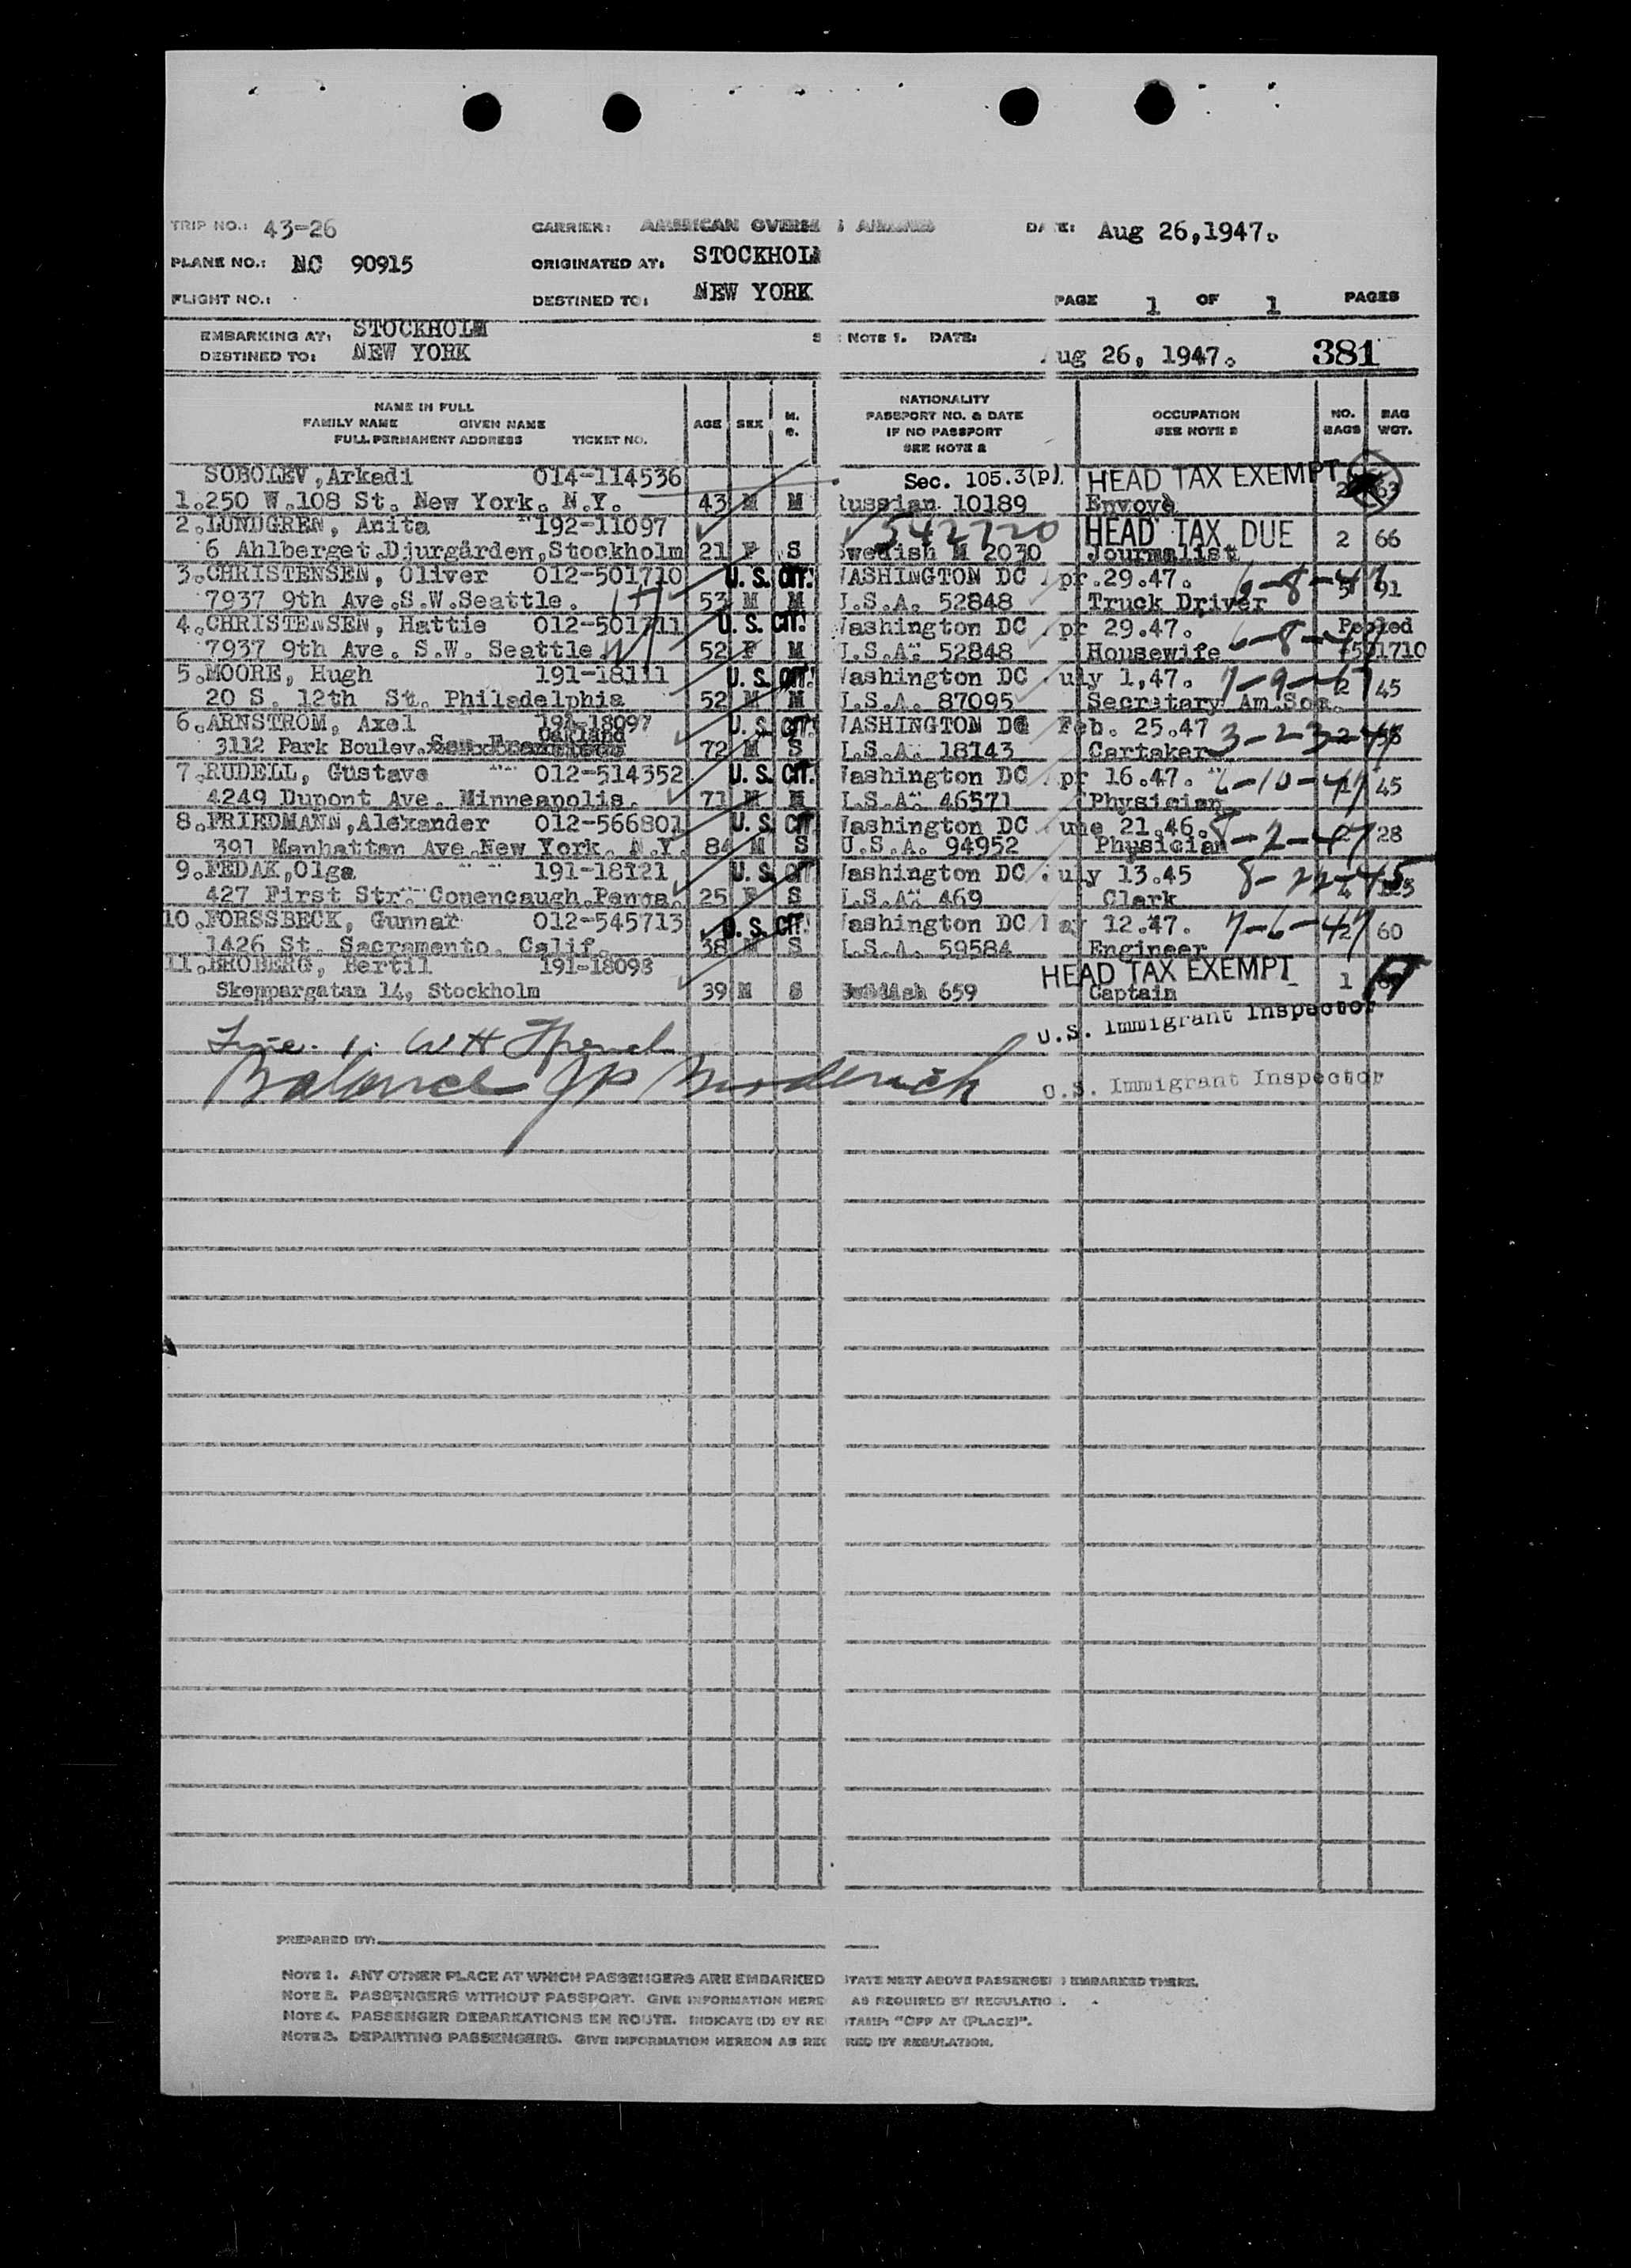 TRIP NO.: 43-26 CARRIER: AMERICAN OVERSE S AIRLINES DATE: Aug 26,1947.
PLANE NO.: NC 90915 ORIGINATED AT: STOCKHOLM
FLIGHT NO.: DESTINED TO: NEW YORK PAGE 1 OF 1 PAGES
EMBARKING AT: STOCKHOLM S NOTE 1. DATE:
DESTINED TO: NEW YORK ug 26, 1947. 381
NAME IN FULL
FAMILY NAME GIVEN NAME
FULL PERMANENT ADDRESS TICKET NO.
AGE SEX M. S.
NATIONALITY
PASSPORT NO. & DATE
IF NO PASSPORT
SEE NOTE 2
OCCUPATION
SEE NOTE 2
NO. BAGS
BAG WGT.
SOBOLEV,Arkadi 014-114536 Sec. 105.3(p). HEAD TAX EXEMPT
1.250 W.108 St. New York. N.Y. 43 M M Russian 10189 Envoyè 2 63
2.LUNDGREN, Anita 192-11097 542720 HEAD TAX DUE
6 Ahlberget.Djurgården,Stockholm 21 F S Swedish M 2030 Journalist 2 66
3.CHRISTENSEN, Oliver 012-501710 U.S. CIT. WASHINGTON DC pr.29.47. 6-8-47
7937 9th Ave.S.W.Seattle. 53 M M U.S.A. 52848 Truck Driver 5 91
4.CHRISTENSEN, Hattie 012-501711 U.S. CIT. Washington DC pr 29.47. 6-8-47 Pooled
7937 9th Ave. S.W. Seattle. 52 F M U.S.A. 52848 Housewife 501710
5.MOORE, Hugh 191-18111 U.S. CIT. Washington DC uly 1,47. 7-9-47
20 S. 12th St. Philadelphia 52 M M U.S.A. 87095 Secretary Am.Soa. 2 45
6.ARNSTROM, Axel 191-18097 U.S. CIT. WASHINGTON DC Feb. 25.47 3-23-47
Oakland
3112 Park Boulev. San Francisco 72 M S U.S.A. 18143 Cartaker 2 58
7.RUDELL, Gustave 012-514352 U.S. CIT. Washington DC pr 16.47.
4249 Dupont Ave. Minneapolis. 71 M M U.S.A. 46571 Physician 45
8.FRIEDMANN,Alexander 012-566801 U.S. CIT. Washington DC une 21.46. 8-2-47
391 Manhattan Ave.New York. N.Y. 84 M S U.S.A. 94952 Physician 2 28
9.FEDAK,Olga 191-18121 U.S. CIT. Washington DC uly 13.45 8-22-45
427 First Str. Conencaugh.Penna. 25 F S U.S.A. 469 Clark 4
10.FORSSBECK, Gunnar 012-545713 U.S. CIT. Washington DC ay 12.47. 7-6-47
1426 St. Sacramento. Calif. 38 M S U.S.A. 59584 Engineer 2 60
11.BROBERG, Bertil 191-18098 HEAD TAX EXEMPT
Skeppargatan 14, Stockholm 39 M S Swedish 659 Captain 1
U.S. Immigrant Inspector
Line 1. W H
Balance JP U.S. Immigrant Inspector
PREPARED BY:
NOTE 1. ANY OTHER PLACE AT WHICH PASSENGERS ARE EMBARKED STATE NEXT ABOVE PASSENGER EMBARKED THERE.
NOTE 2. PASSENGERS WITHOUT PASSPORT. GIVE INFORMATION HERE AS REQUIRED BY REGULATION.
NOTE 4. PASSENGER DEBARKATIONS EN ROUTE. INDICATE (D) BY RE STAMP: "OFF AT (PLACE)".
NOTE 3. DEPARTING PASSENGERS. GIVE INFORMATION HEREON AS REQ RED BY REGULATION.